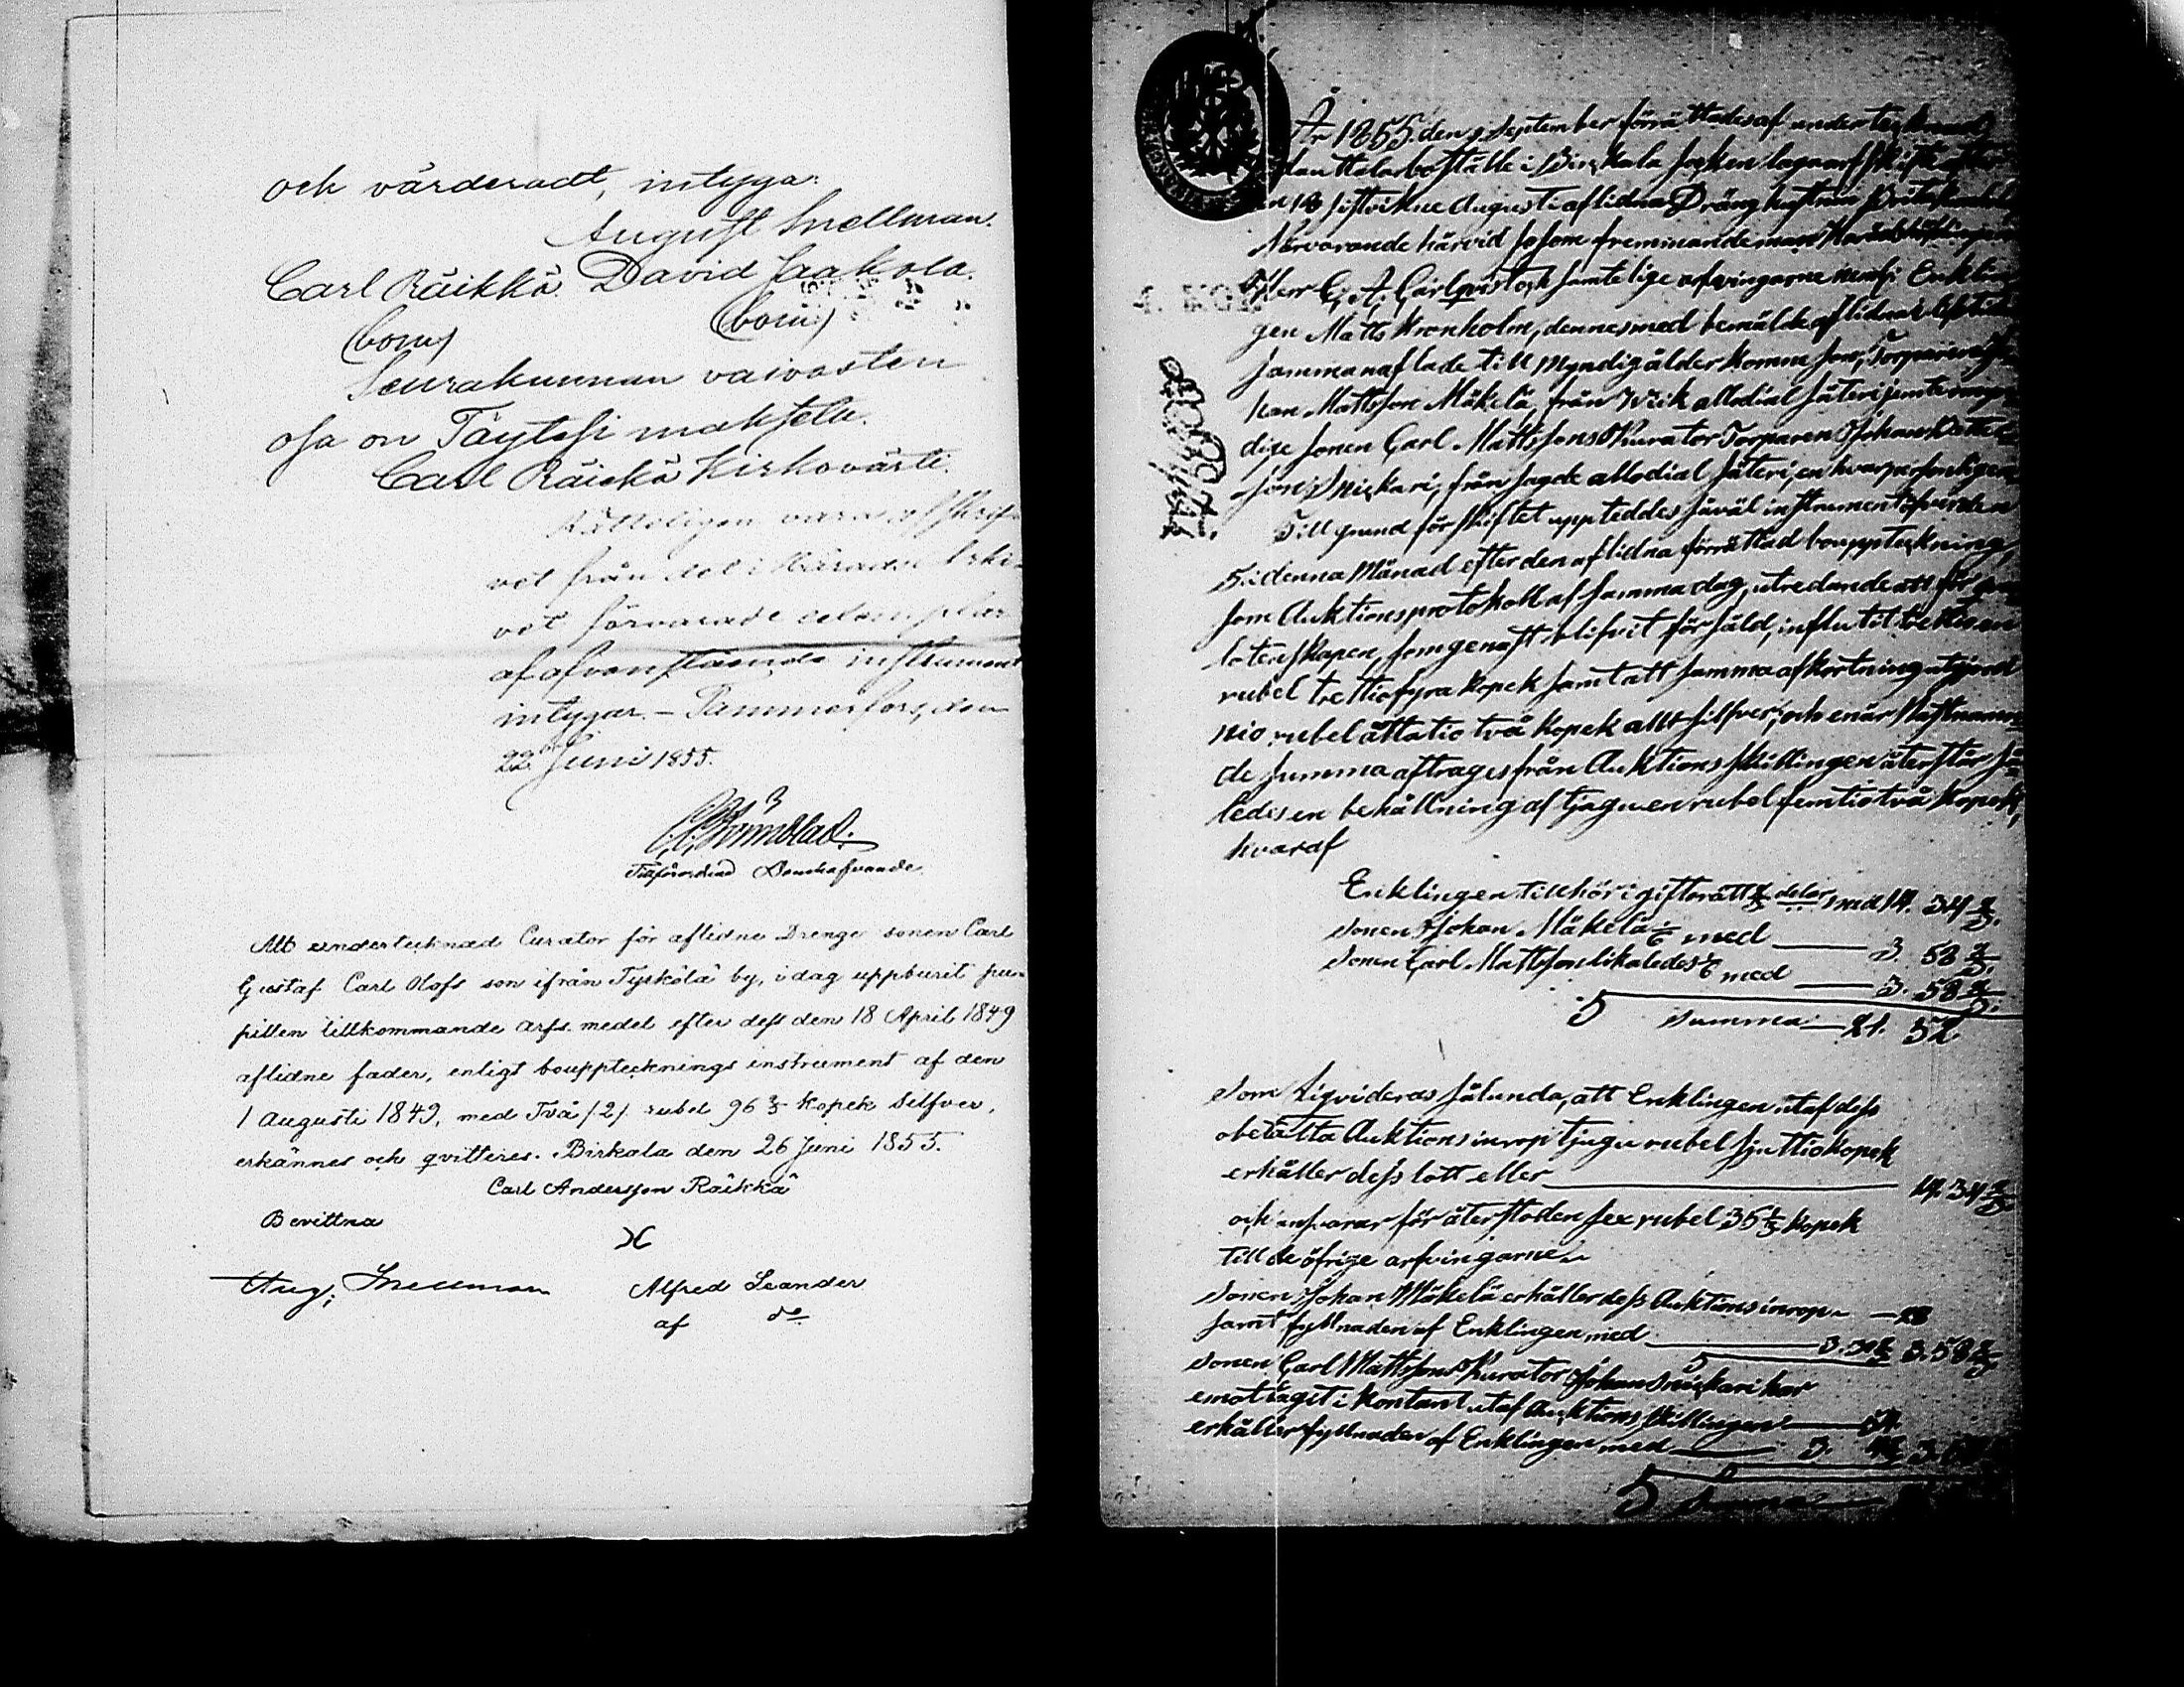 och värderadt, intyga:
August Snellman.
Carl Räikkä. David Jaakola.
(bom) (bom)
Seurakunnan vaivasten
osa on Täytesi maksetu.
Carl Räickä Kirkovärti.
Rätteligen vara afskrif-
vet från det i Härads Arki-
vet förvarade exemplar
af ofvanstående instrument
intygar. – Tammerfors, den
22 Juni 1855.
Tillförordnad Domhafvande
Att undertecknad Curator för aflidne Drenge sonen Carl
Gustaf Carl Olofs son ifrån Tyrkölä by, i dag uppburit pu-
pillen tillkommande arfs medel efter dess den 18 April 1849
aflidne fader, enligt bouppteknings instrument af den
1 Augusti 1849, med Två /2/ rubel 96 3/5 kopek Silfver,
erkännes och qvitteres. Birkala den 26 Juni 1855.
Carl Andersson Räikkä
Bevittna
Aug; Snellman Alfred Leander
af do
År 1855 den 5 September förrättades af undertecknad
boställe i Birkala Socken lagaarfskifte
18 sistvikne Augusti aflidna Dräng hustrun
Närvarande härvid såsom
Herr C. A. Carlqvist och samtelige arfvingarne nemligen Enklin-
gen Matts Kronholm, dennes med bemälde aflidna
sammanaflade till myndig ålder komne son, Torparen Jo-
han Mattsson Mäkelä, från Wiik allodial säteri jemte omyn-
dige sonen Carl Mattssons Kurator Torparen Johan
son Snickari, från sagde allodial säteri, en hvar personligen
Till grund för skiftet uppteddes såväl instrument öfver den
5 i denna Månad efter den aflidna förrättad bouppteckning,
som Auktionsprotokoll af samma dag, utredande att för qvar-
lotenskapen, som genast blifvit försåld, influtit trettioen
rubel trettiofyra kopek samt att samma afkortning utgjord
nio rubel åttatio två kopek allt silfver; och enär sistnämn-
de summa aftrages från Auktions skillingen återstår så-
ledes en behållning af tjuguen rubel femtiotvå kopek,
hvaraf
Enklingen tillhör i giftorätt 2/3 delar med 14. 34 2/3.
Sonen Johan Mäkelä 1/6 med 3. 58 2/3.
Sonen Carl Mattsson likaledes 1/6 med 3. 58 2/3.
S Summa 21. 52.
Som liqvideras sålunda, att Enklingen utaf dess
obetalta Auktions inrop tjugu rubel sjuttio kopek
erhåller dess lott eller 14. 34 2/3.
och ansvarar för återstoden sex rubel 35 1/3 kopek
till de öfrige arfvingarne.
Sonen Johan Mäkelä erhåller dess Auktions inrop
samt fyllnaden af Enklingen med 3. 58 2/3
Sonen Carl Mattssons Kurator Johan Snickari har
emottaget i kontant utaf Auktions skillingen
erhåller fyllnaden af Enklingen med 3.
S Summa